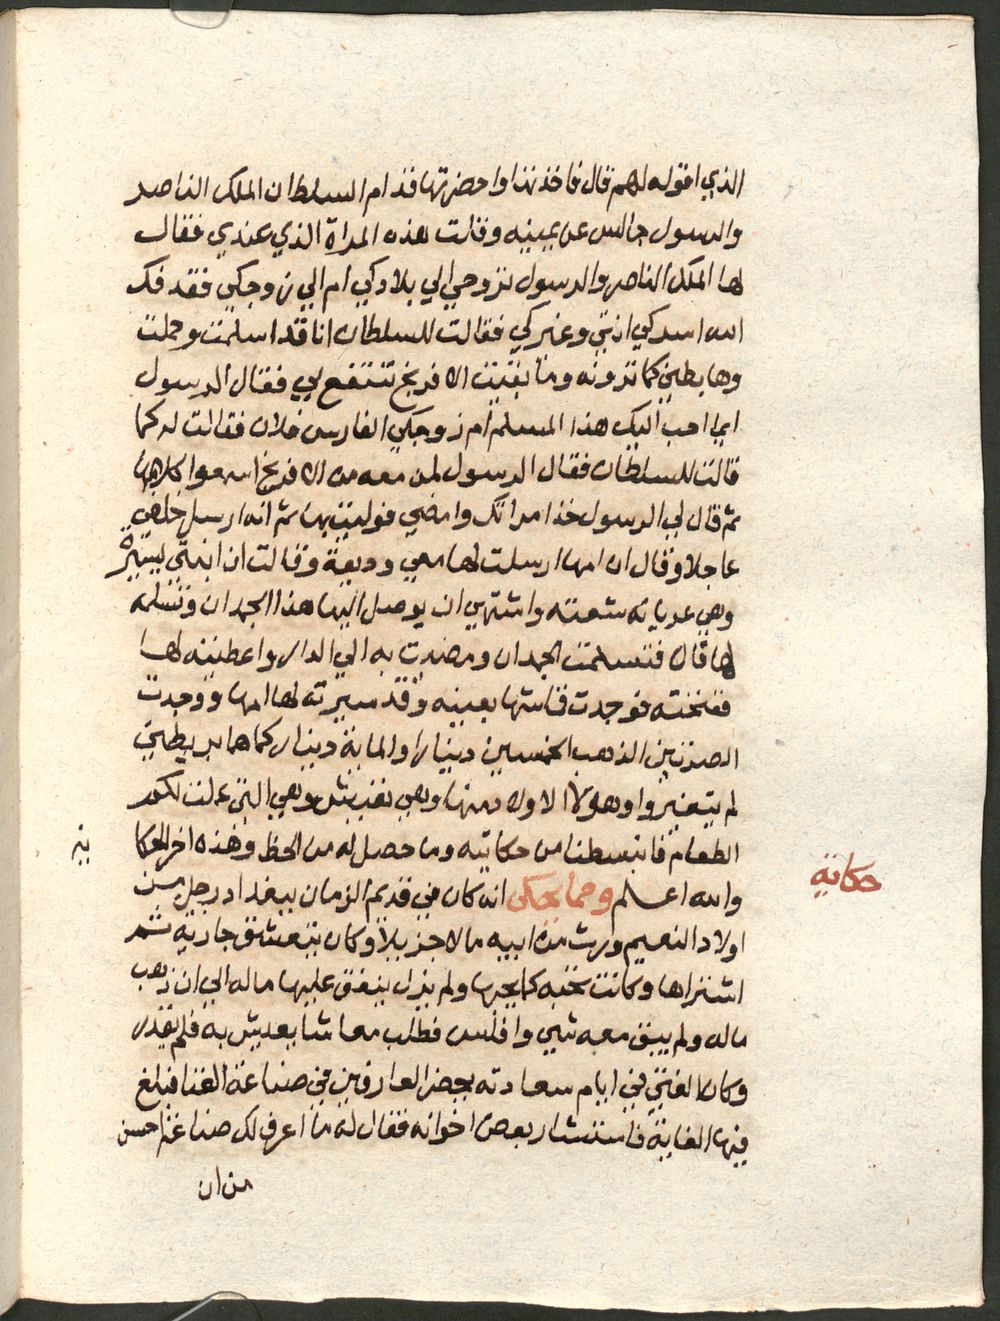 الذي اقوله لهم قال فاخذتها واحضرتها قدام السلطان الملك الناصر
والرسول جالس عن يمينه وقلت هذه المراة الذي عندي فقال
لها الملك الناصر والرسول تروحي الي بلادكي ام الي زوجكي فقد فك
الله اسركي انتي وغيركي فقالت للسلطان انا قد اسلمت وحملت
وها بطني كما ترونه وما بقيت الافرنج تنتفع بي فقال الرسول
ايما احب اليك هذا المسلم ام زوجكي الفارس فلان فقالت له كما
قالت للسلطان فقال الرسول لمن معه من الافرنج اسمعوا كلامها
ثم قال لي الرسول خذ امراتك وامضي فوليت بها ثم انه ارسل خلفي
عاجلا وقال ان امها ارسلت لها معي وديعة وقالت ان ابنتي يسيرة
وهي عريانه شعته واشتهي ان يوصل اليها هذا الجمدان وتسلمه
لها قال فتسلمت الجمدان ومضيت به الي الدار واعطيته لها
ففتحته فوجدت قماشها بعينه وقد سيرته لها امها ووجدت
الصرتين الذهب الخمسين دينارا والماية دينار كما هما بربطتي
لم يتغيروا وهولاء الاولاد منها وهي تعيش وهي التي عملت لكم
الطعام فانبسطنا من حكايته وما حصل له من الحظ وهذه اخر الحكا
ية
والله اعلم ومما يحكى انه كان في قديم الزمان ببغداد رجل من
حكاية
اولاد النعيم ورث من ابيه مالا جزيلا وكان يتعشق جارية ثم
اشتراها وكانت تحبه كما يحبها ولم يزل ينفق عليها ماله الي ان ذهب
ماله ولم يبق معه شي وافلس فطلب معاشا يعيش به فلم يقدر
وكان الفتي في ايام سعادته يحضر العارفين في صناعة الغنا فبلغ
فيها الغاية فاستشار بعض اخوانه فقال له ما اعرف لك صناعة احسن
من ان